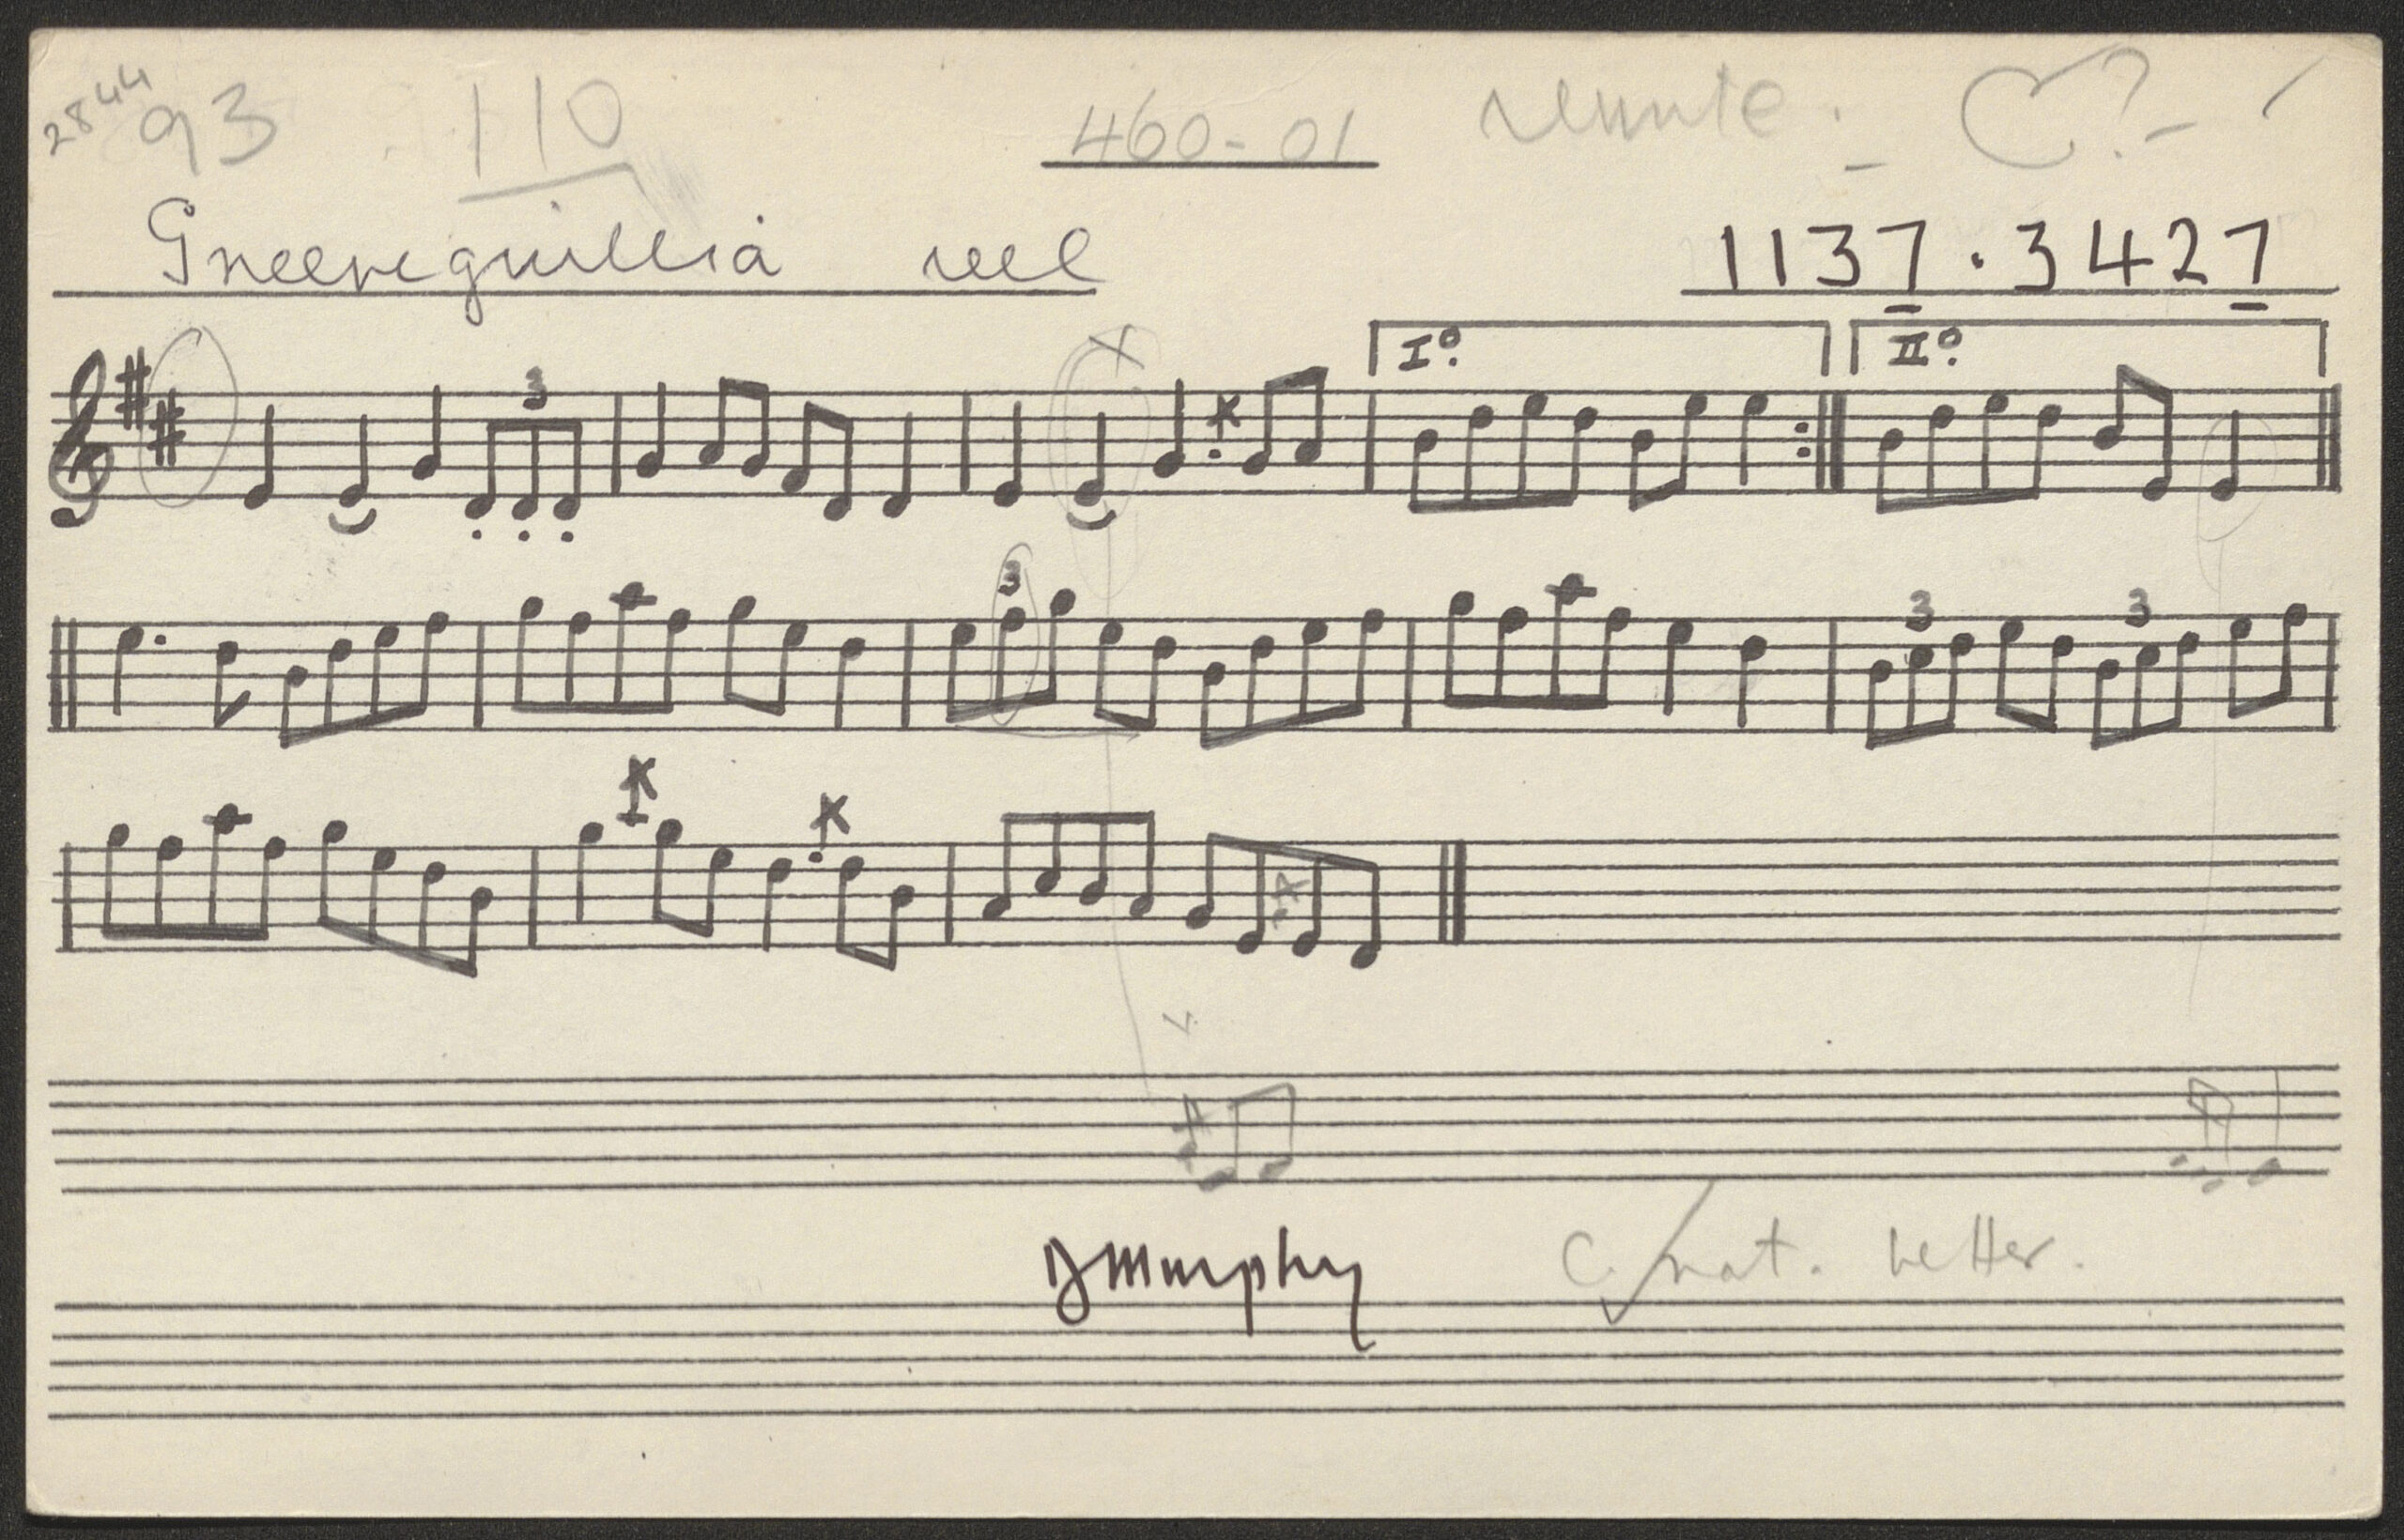 2844
93 110 460-01 rewrite. C?
Gneeveguillia reel 1137.3427
3 Iº. IIº.
3 3 3
DMurphy C. nat. better.